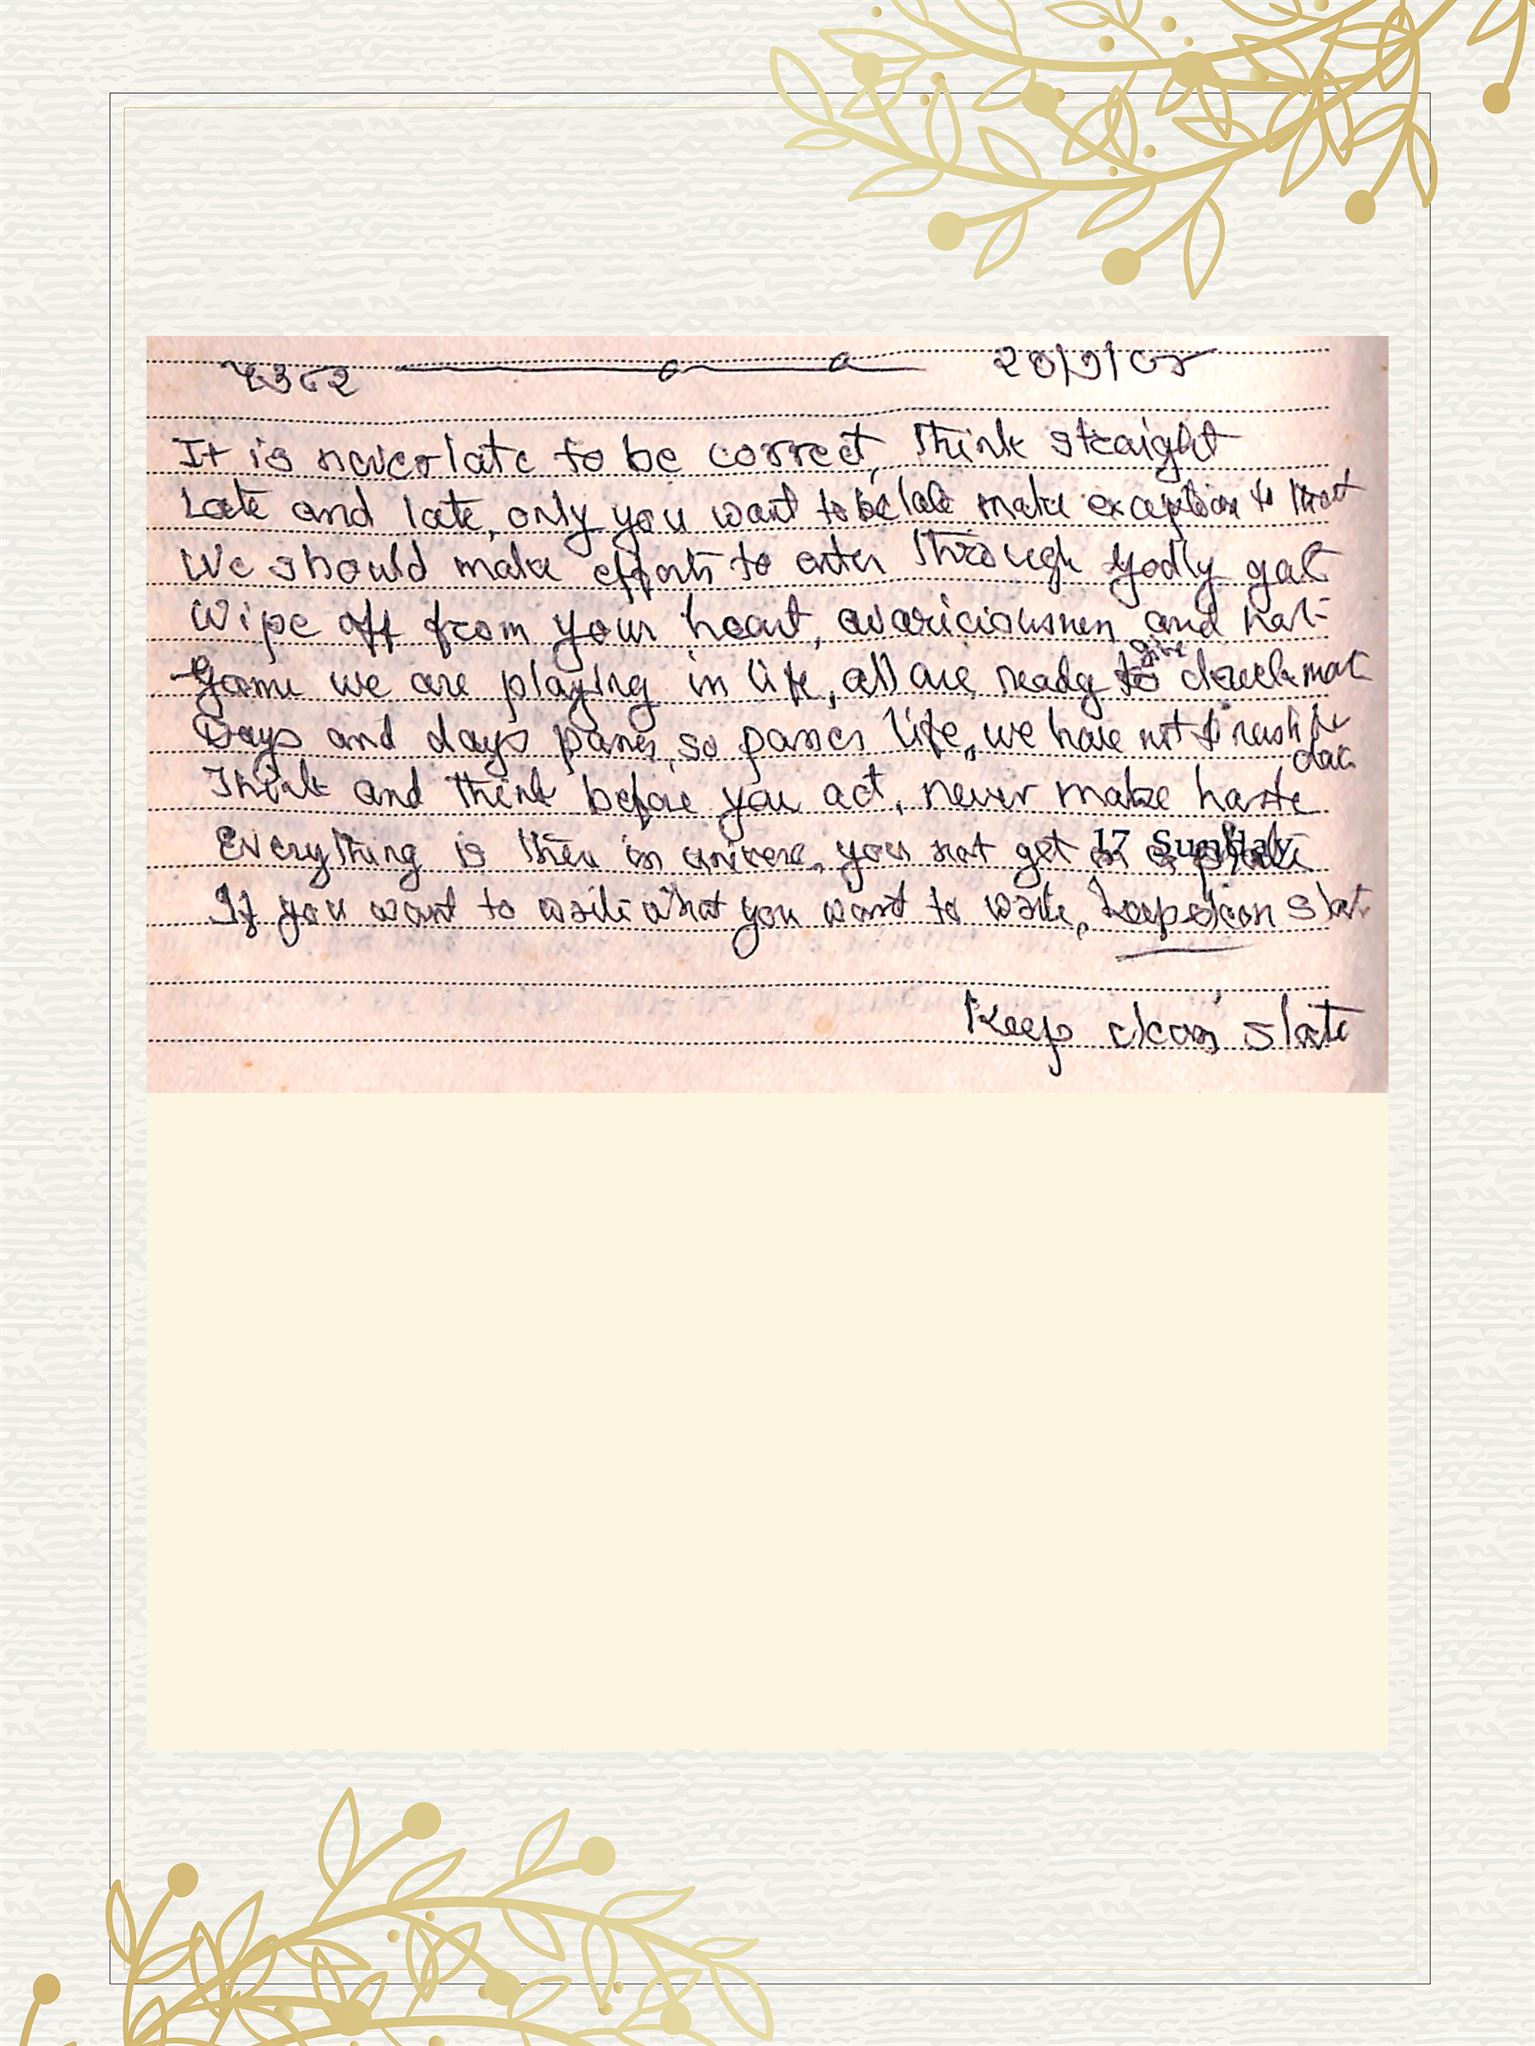 It is never late to be correct, think straight
Late and late, only you want to be late make exception to that
We should make efforts to enter through godly gate
Wipe off from your heart, avariciousness and hate
Game we are playing in life, all are ready to give checkmate
Days and days passes, so passes life, we have not to rush
Think and think before you act, never make haste
Everything is there in universe, you not get on a
17 Sunday
If you want to write what you want to write, keep clean slate
Keep clean slate